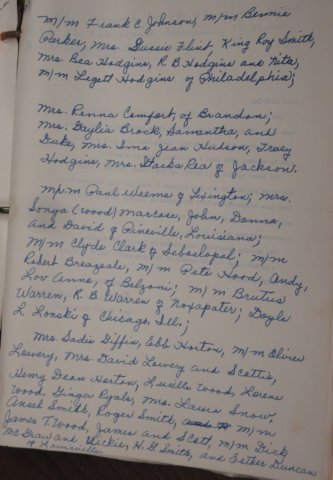 m/m Frank C. Johnson, m/m Bennie
Parker, Mrs. Dussie Flint, King Roy Smith,
Mrs. Bea Hodgins, R. B Hodgins and Nita,
m/m Ligett Hodgins of Philadelphia;
Mrs. Renna Comfort, of Brandon;
Mrs. Gaylia Brock, Samantha, and
Duke, Mrs. Ima Jean Hudson, Tracy
Hodgins, Mrs. Staska Rea of Jackson.
M/m Paul Weems of Lexington; Mrs.
Sonya (Wood) Marcose, John, Donna,
and David of Pineville, Louisiana;
m/m Clyde Clark of Sebastopol; m/m
Robert Breazeale, m/m Pete Hood, Andy,
Lou Anne, of Belzoni; m/m Brutus
Warren, R. B. Warren of Noxapater; Doyle
L. Lonski of Chicago, Ill.;
Mrs. Sadie Giffin, Ebb Horton, m/m Olivis
Lowery, Mrs. David Lowery and Scottie,
Henry Dean Horton, Lucille Wood, Lorene
Wood, Ginga Ryals, Mrs. Laura Snow,
Ansel Smith, Roger Smith, m/m
James T. Wood, James and Scott, m/m Dick
McGraw and Vickie, H. G. Smith, and Esther Duncan
of Louisville.